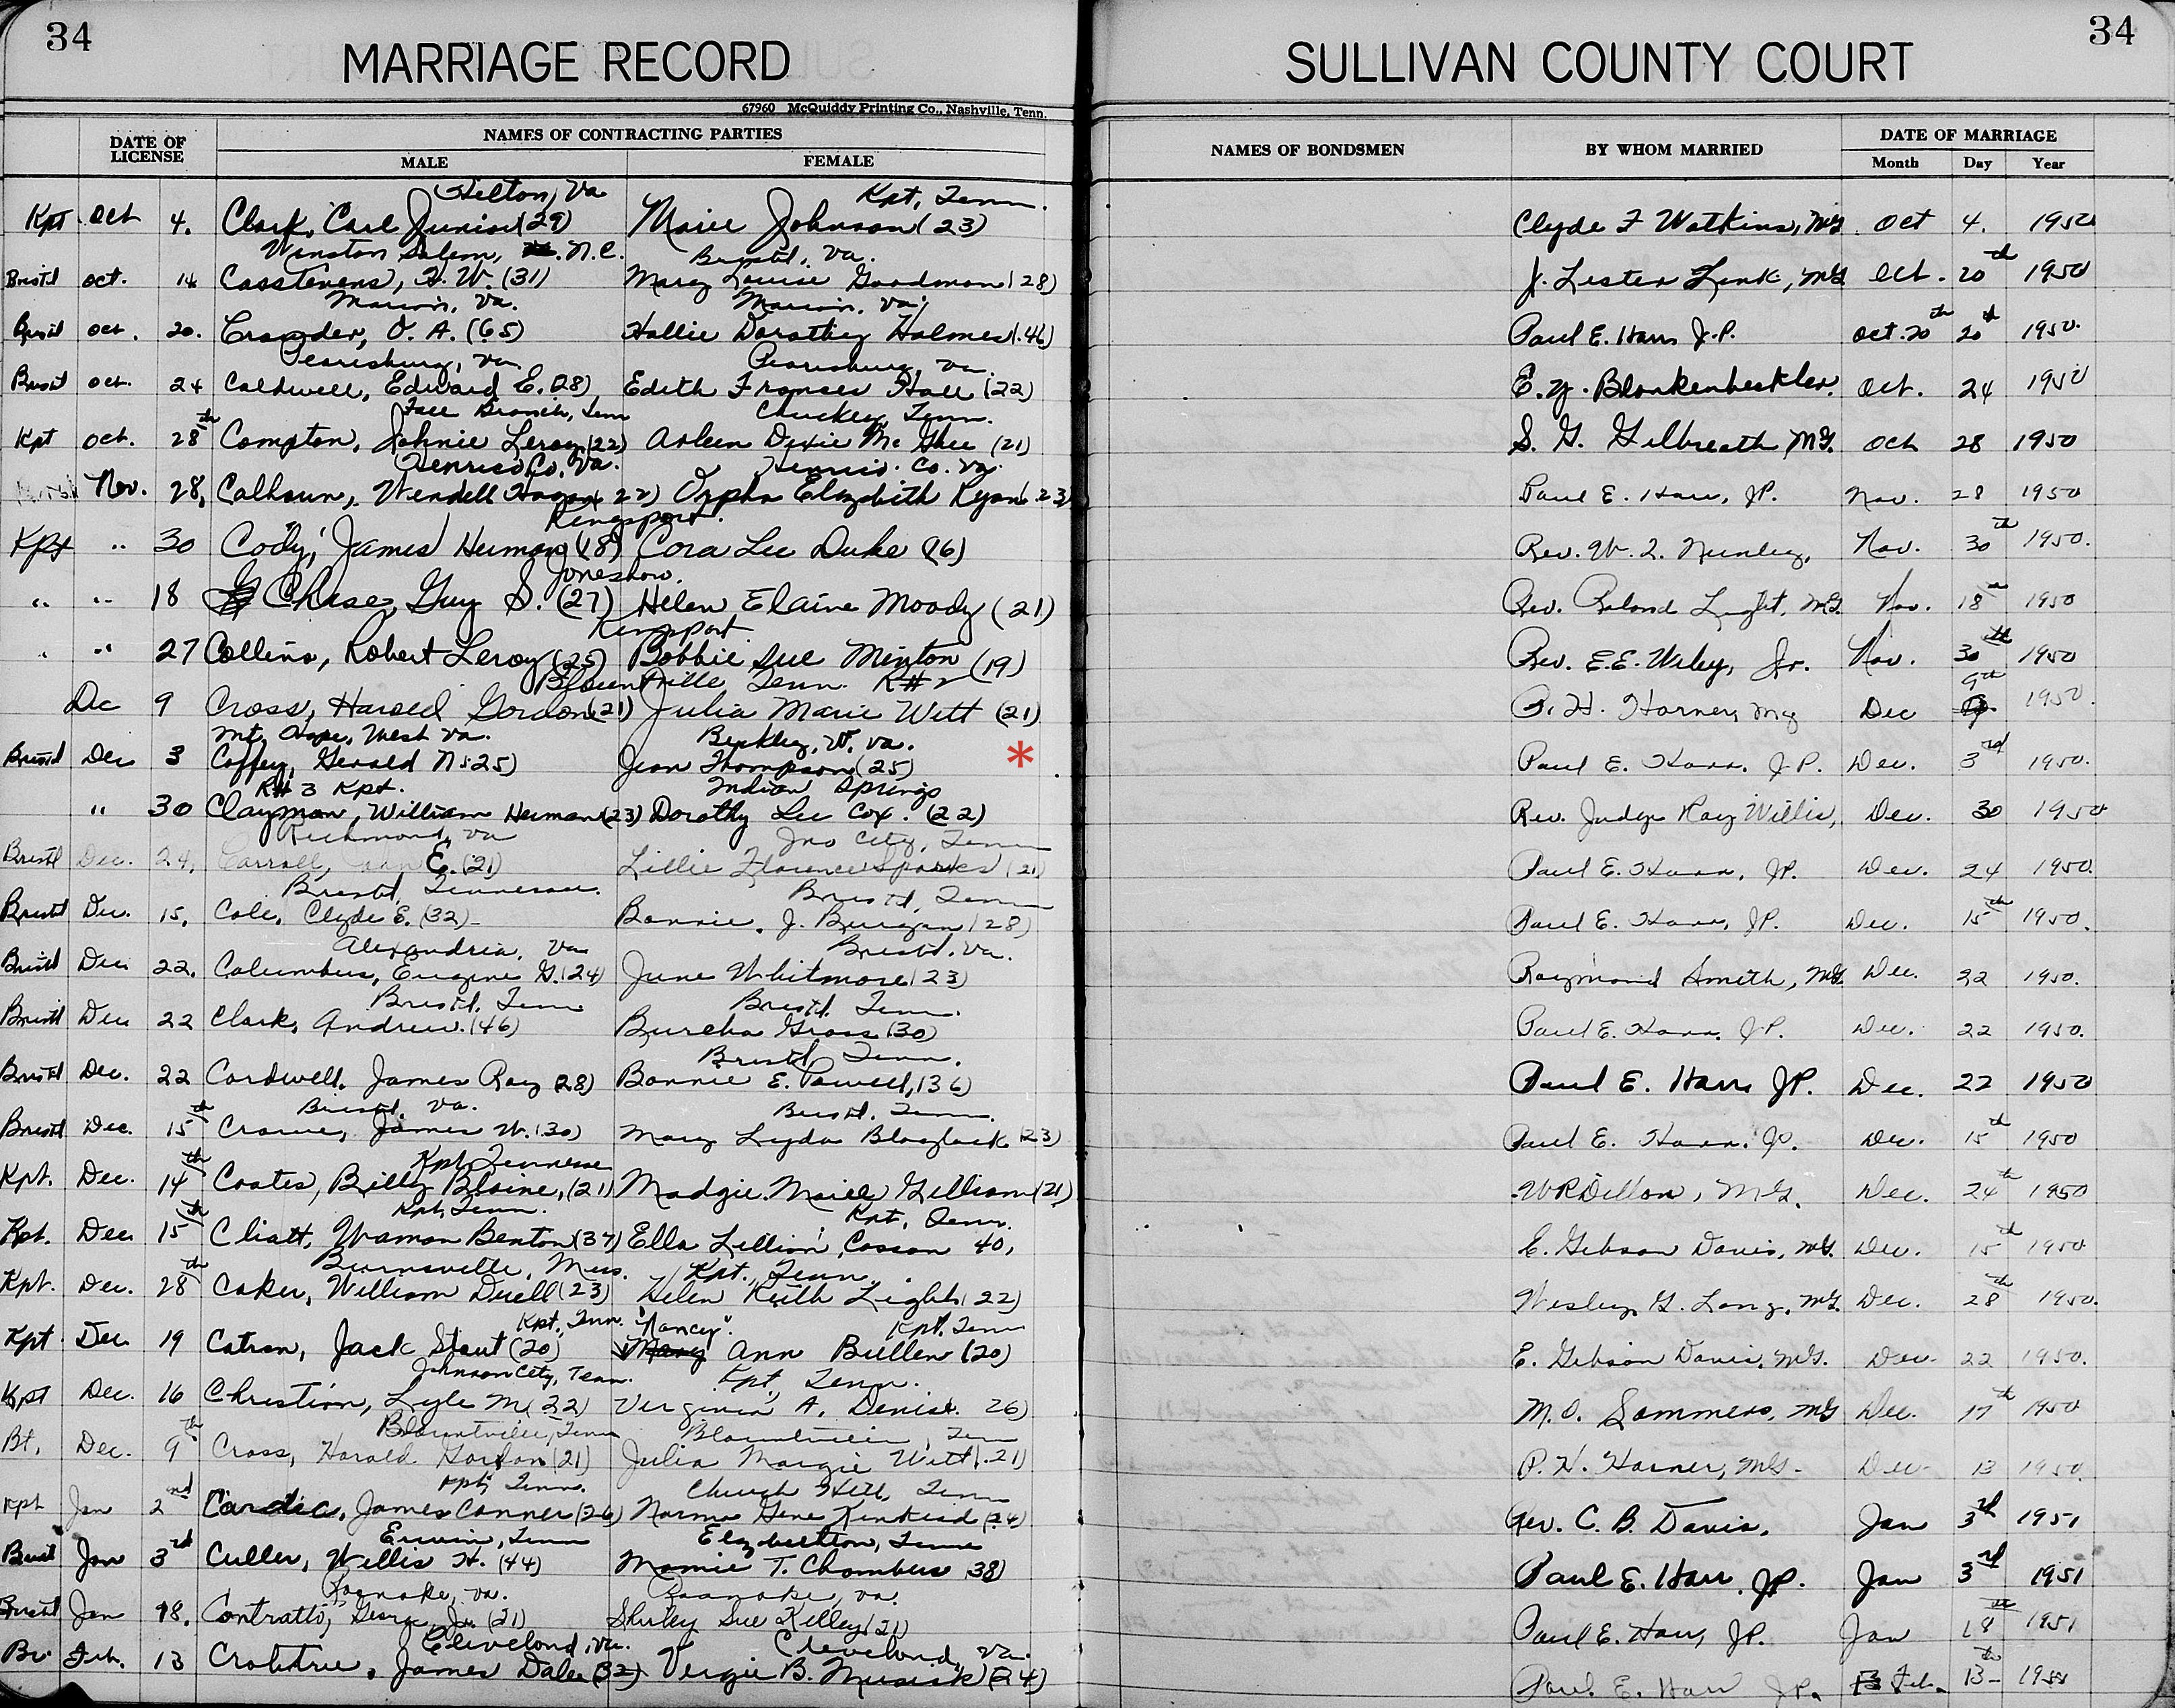 34
34
MARRIAGE RECORD
SULLIVAN COUNTY COURT
67960 McQuiddy Printing Co., Nashville, Tenn.
DATE OF LICENSE
NAMES OF CONTRACTING PARTIES
MALE
FEMALE
NAMES OF BONDSMEN
BY WHOM MARRIED
DATE OF MARRIAGE
Month Day Year
Hilton, Va Kpt, Tenn.
Kpt Oct 4. Clark, Carl Junior (29) Marie Johnson (23) Clyde F Watkins, MG Oct 4. 1950
Winston Salem, N.C. Bristol, Va.
Bristol Oct. 14 Casstevens, H. W. (31) Mary Louise Goodman (28) J. Lester Link, MG Oct. 20th 1950
Marion, Va. Marion, Va.
Bristol Oct. 20. Crowder, O. A. (65) Hallie Dorothy Holmes (46) Paul E. Harr J.P. Oct. 20th 20th 1950.
Pearisburg, Va. Pearisburg, Va.
Bristol Oct. 24 Caldwell, Edward E. (28) Edith Frances Hall (22) E. Y. Blankenbeckler. Oct. 24 1950
Fall Branch, Tenn Chuckey, Tenn.
Kpt Oct. 28th Compton, Johnie Leroy (22) Arleen Dixie McGhee (21) S. G. Gilbreath, MG. Oct 28 1950
Henrico Co. Va. Henrico. Co. Va.
Nov. 28, Calhoun, Wendell (22) Orpha Elizabeth Ryan (23) Paul E. Harr, JP. Nov. 28 1950
Kingsport.
Kpt " 30 Cody, James Herman (18) Cora Lee Duke (16) Rev. W. L. Nunley, Nov. 30th 1950.
Jonesboro.
" " 18 Chase, Guy S. (27) Helen Elaine Moody (21) Rev. Roland Light, MG. Nov. 18 1950
Kingsport
" " 27 Collins, Robert Leroy (25) Bobbie Sue Minton (19) Rev. E.E. Wiley, Jr. Nov. 30th 1950
Blountville Tenn. R#2
Dec 9 Cross, Harold Gordon (21) Julia Marie Witt (21) P. H. Harner, MG Dec 9th 1950.
Mt. Hope, West Va. Beckley, W. Va.
Bristol Dec 3 Coffey, Gerald N. (25) Jean Thompson (25) * Paul E. Harr. J.P. Dec. 3rd 1950.
R# 3 Kpt. Indian Springs
" 30 Clayman, William Herman (23) Dorothy Lee Cox. (22) Rev. Judge Ray Willis, Dec. 30 1950
Richmond, Va Jno City, Tenn
Bristol Dec. 24, Carroll, John E. (21) Lillie Florence Sparks (21) Paul E. Harr, JP. Dec. 24 1950.
Bristol, Tennessee. Bristol, Tenn
Bristol Dec. 15, Cole, Clyde E. (32) Bonnie. J. Burgan (28) Paul E. Harr, JP. Dec. 15th 1950.
Alexandria, Va Bristol, Va.
Bristol Dec 22, Columbus, Eugene G. (24) June Whitmore (23) Raymond Smith, MG. Dec. 22 1950.
Bristol, Tenn Bristol, Tenn.
Bristol Dec 22 Clark, Andrew. (46) Burcha Gross (30) Paul E. Harr. J.P. Dec. 22 1950.
Bristol, Tenn.
Bristol Dec. 22 Cardwell, James Ray (28) Bonnie E. Powell, (36) Paul E. Harr JP. Dec. 22 1950
Bristol, Va. Bristol, Tenn.
Bristol Dec. 15th Crowe, James W. (30) Mary Lyda Blaylock (23) Paul E. Harr. JP. Dec. 15th 1950
Kpt, Tennessee
Kpt. Dec. 14th Coates, Billy Blaine, (21) Madgie Marie Gilliam (21) W R Dillon, MG. Dec. 24th 1950
Kpt, Tenn. Kpt, Tenn.
Kpt. Dec 15th Cliatt, Waman Benton (37) Ella Lillion Casson 40, E. Gibson Davis, MG. Dec. 15th 1950
Burnsville, Miss. Kpt., Tenn.
Kpt. Dec. 28th Coker, William Duell (23) Helen Keith Light (22) Wesley G. Long, MG. Dec. 28th 1950.
Kpt., Tenn. "Nancy". Kpt, Tenn
Kpt Dec 19 Catron, Jack Stout (20) Mary Ann Bullen (20) E. Gibson Davis, MG. Dec. 22 1950.
Johnson City, Tenn. Kpt, Tenn.
Kpt Dec. 16 Christian, Lyle M. (22) Virginia A. Denise. 26) M. O. Sommers, MG Dec. 17th 1950
Blountville, Tenn Blountville, Tenn
Bt. Dec. 9th Cross, Harold Gordon (21) Julia Margie Witt (21) P. H. Harner, MG. Dec. 13 1950.
Kpt, Tenn. Church Hill, Tenn
Kpt Jan 2nd Cardia, James Conner (26) Norma Gene Kinkead (24) Rev. C. B. Davis, Jan 3rd 1951
Erwin, Tenn Elizabethton, Tenn
Bristol Jan 3rd Culler, Willis H. (44) Mamie T. Chambers 38) Paul E. Harr. JP. Jan 3rd 1951
Roanoke, Va. Roanoke, Va.
Bristol Jan 18. Contratto, George, Jr. (21) Shirley Sue Kelley (21) Paul E. Harr, JP. Jan 18th 1951
Cleveland, Va. Cleveland, Va.
Br. Feb. 13 Crabtree, James Dale (32) Vergie B. Musick (24) Paul. E. Harr JP. Feb. 13th 1951